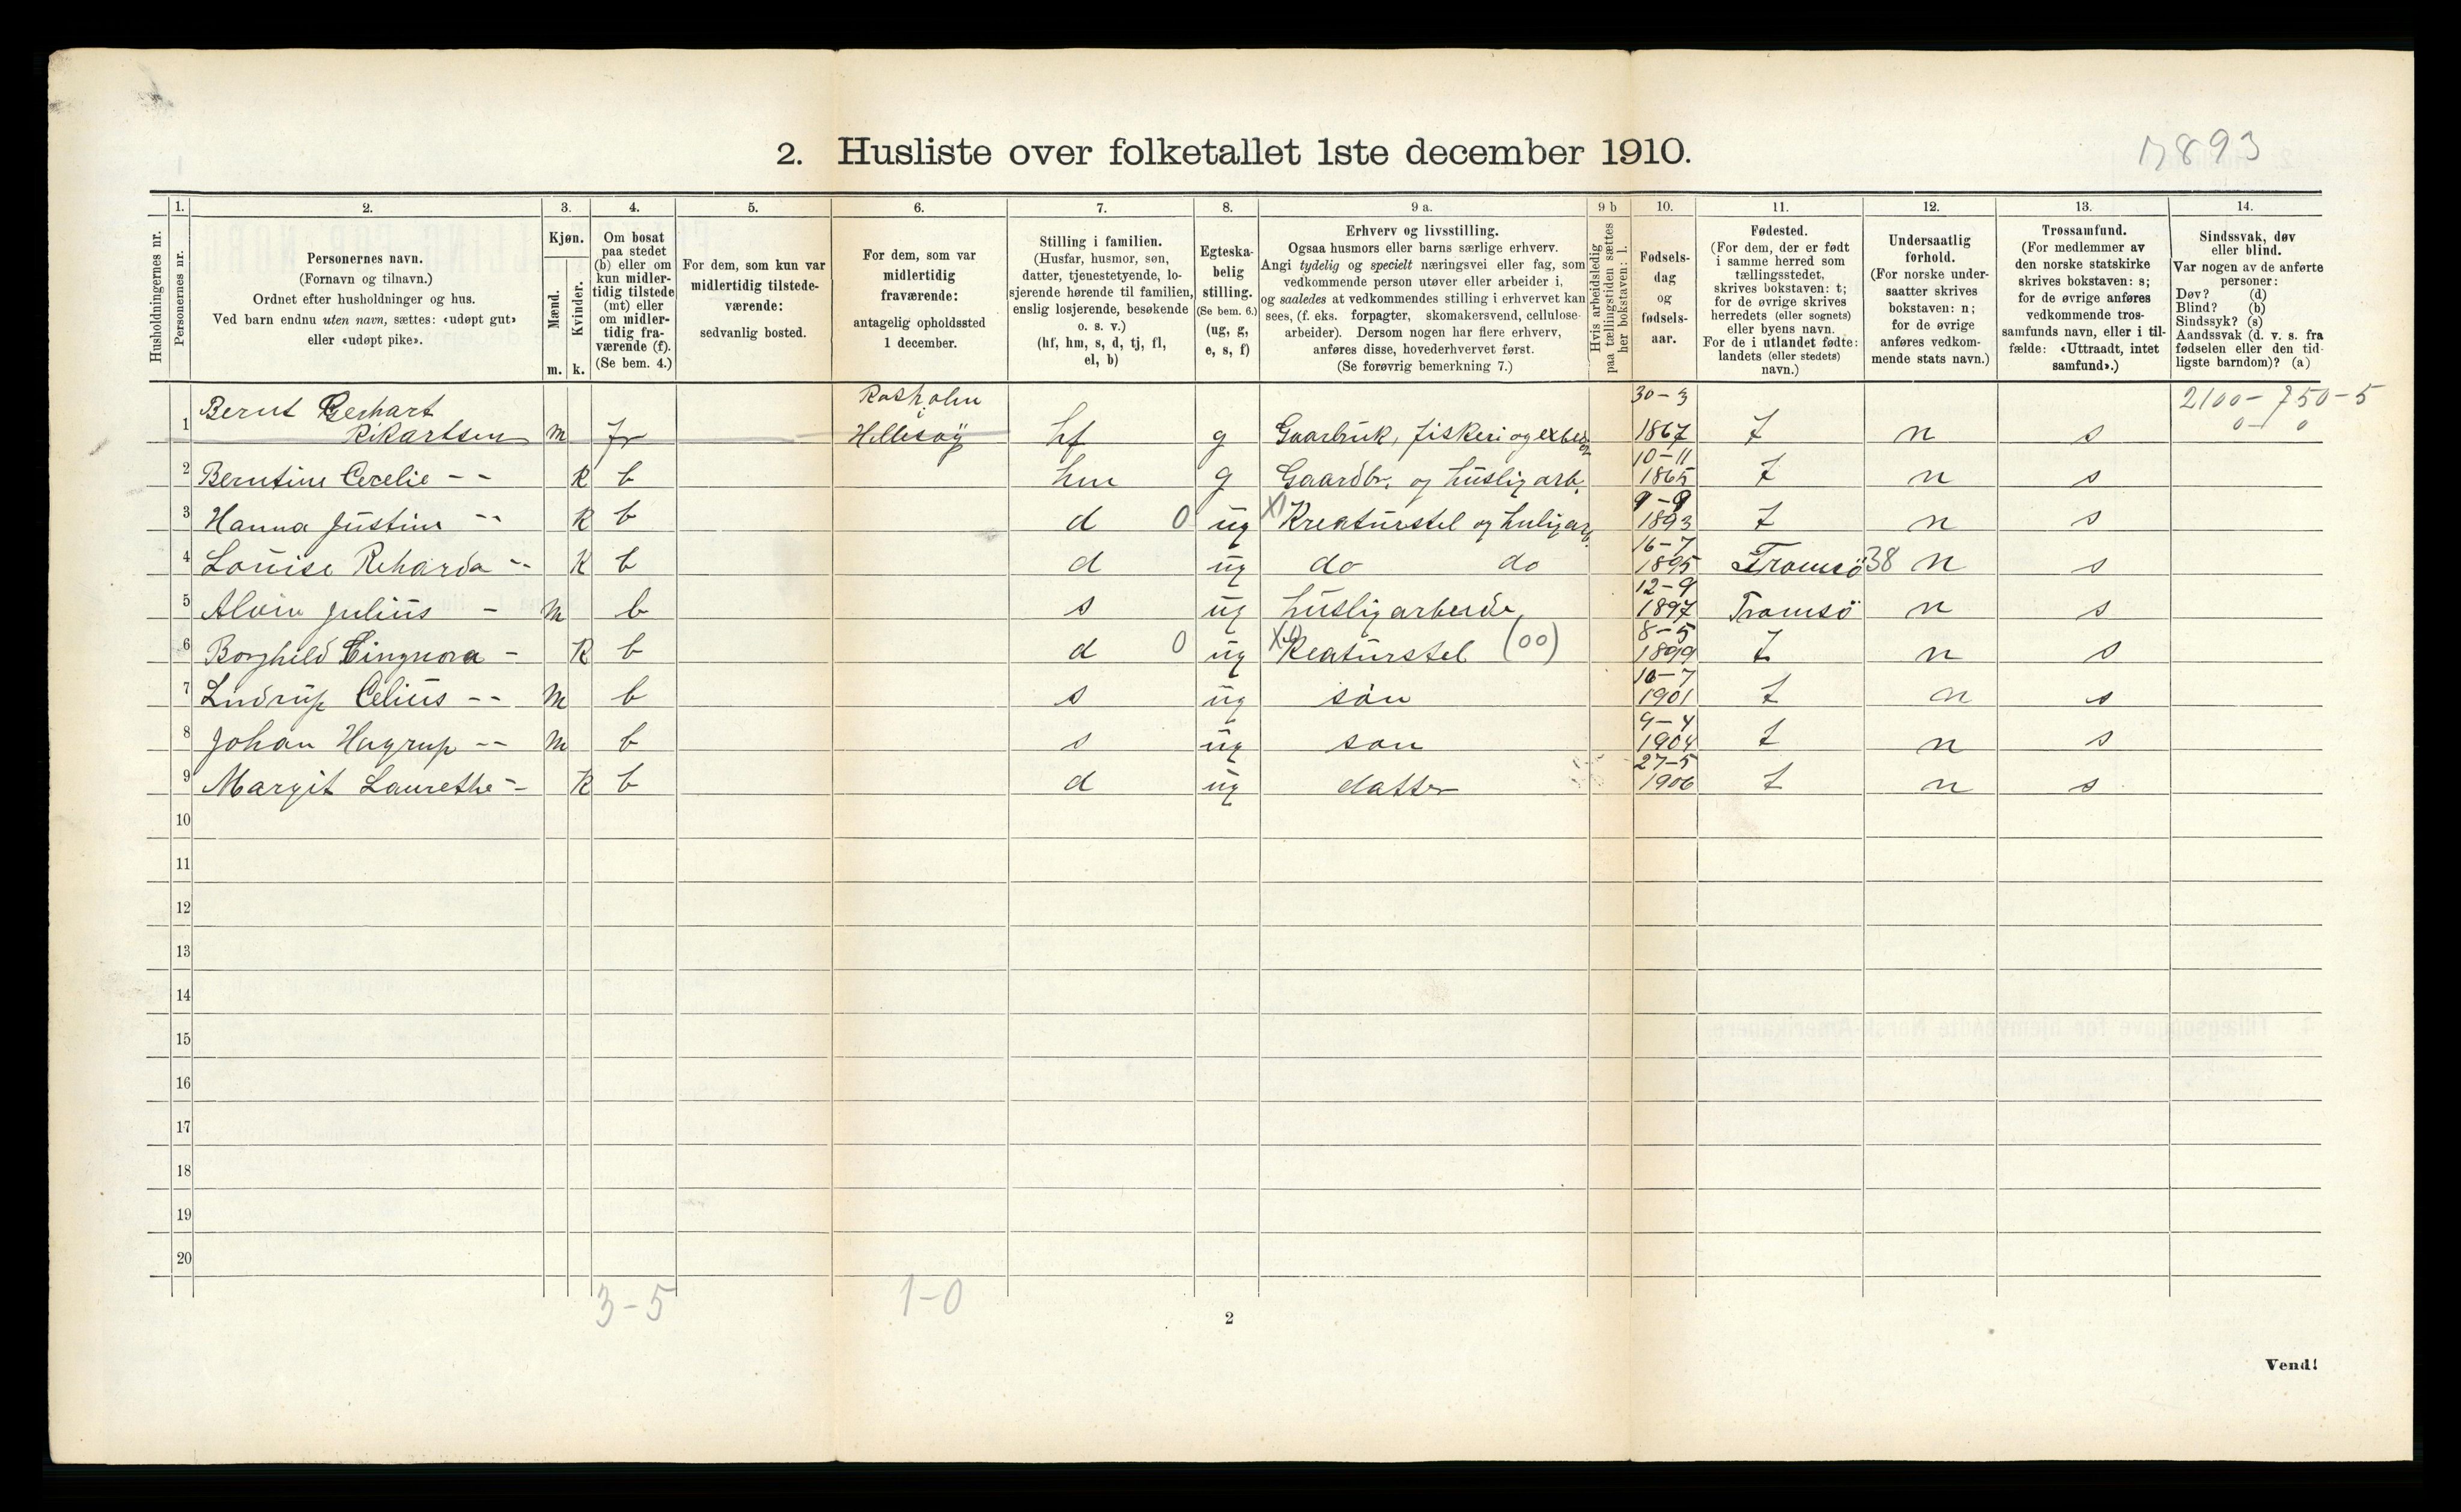 2. Husliste over folketallet 1ste december 1910.
7893
1. 2. 3. 4. 5. 6. 7. 8. 9 a. 9 b 10. 11. 12. 13. 14.
Husholdningernes nr.
Personernes nr.
Personernes navn.
(Fornavn og tilnavn.)
Ordnet efter husholdninger og hus.
Ved barn endnu uten navn, sættes: «udøpt gut»
eller «udøpt pike».
Kjøn.
Mænd.
Kvinder.
m. k.
Om bosat
paa stedet
(b) eller om
kun midler-
tidig tilstede
(mt) eller
om midler-
tidig fra-
værende (f).
(Se bem. 4.)
For dem, som kun var
midlertidig tilstede-
værende:
sedvanlig bosted.
For dem, som var
midlertidig
fraværende:
antagelig opholdssted
1 december.
Stilling i familien.
(Husfar, husmor, søn,
datter, tjenestetyende, lo-
sjerende hørende til familien,
enslig losjerende, besøkende
o. s. v.)
(hf, hm, s, d, tj, fl,
el, b)
Egteska-
belig
stilling.
(Se bem. 6.)
(ug, g,
e, s, f)
Erhverv og livsstilling.
Ogsaa husmors eller barns særlige erhverv.
Angi tydelig og specielt næringsvei eller fag, som
vedkommende person utøver eller arbeider i,
og saaledes at vedkommendes stilling i erhvervet kan
sees, (f. eks. forpagter, skomakersvend, cellulose-
arbeider). Dersom nogen har flere erhverv,
anføres disse, hovederhvervet først.
(Se forøvrig bemerkning 7.)
Hvis arbeidsledig
paa tællingstiden sættes
her bokstaven: l.
Fødsels-
dag
og
fødsels-
aar.
Fødested.
(For dem, der er født
i samme herred som
tællingsstedet,
skrives bokstaven: t;
for de øvrige skrives
herredets (eller sognets)
eller byens navn.
For de i utlandet fødte:
landets (eller stedets)
navn.)
Undersaatlig
forhold.
(For norske under-
saatter skrives
bokstaven: n;
for de øvrige
anføres vedkom-
mende stats navn.)
Trossamfund.
(For medlemmer av
den norske statskirke
skrives bokstaven: s;
for de øvrige anføres
vedkommende tros-
samfunds navn, eller i til-
fælde: «Uttraadt, intet
samfund».)
Sindssvak, døv
eller blind.
Var nogen av de anførte
personer:
Døv? (d)
Blind? (b)
Sindssyk? (s)
Aandssvak (d. v. s. fra
fødselen eller den tid-
ligste barndom)? (a)
Bernt Gerhart Rosholm 30-3 2100-750-5
1 Rikartsen m fr Hillesøy hf g Gaarbruk, fiskeri og 1867 t n s 0-0
10-11
2 Berntine Cecelie -- k b hm g Gaardbr. og huslig arb. 1865 t n s
9-9
3 Hanna Justine -- k b d 0 ug X Kreaturstel og huligarb. 1893 t n s
16-7
4 Louise Reharda -- k b d ug do do 1895 Tromsö 38 n s
12-9
5 Alvin Julius - m b s ug huslig arbeide 1897 Tromsö n s
8-5
6 Borghild - k b d 0 ug Keaturstel (00) 1899 t n s
10-7
7 Lndrup Celius -- m b s ug sön 1901 t n s
9-4
8 Johan Hagrup -- m b s ug son 1904 t n s
27-5
9 Margit Laurethe - k b d ug datter 1906 t n s
10
11
12
13
14
15
16
17
18
19
20
3-5 1-0
2
Vend!